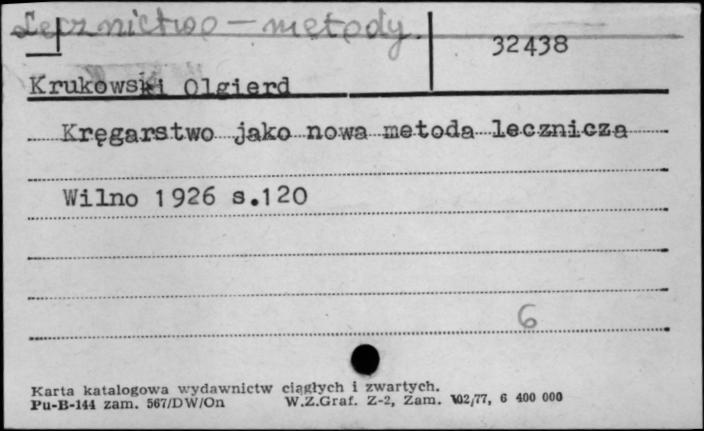 Lecznictwo – metody.
32438
Krukowski Olgierd
Kręgarstwo jako nowa metoda lecznicza
Wilno 1926 s.120
6
Karta katalogowa wydawnictw ciągłych i zwartych.
Pu-B-144 zam. 567/DW/On W.Z.Graf. Z-2, Zam. 102/77, 6 400 000